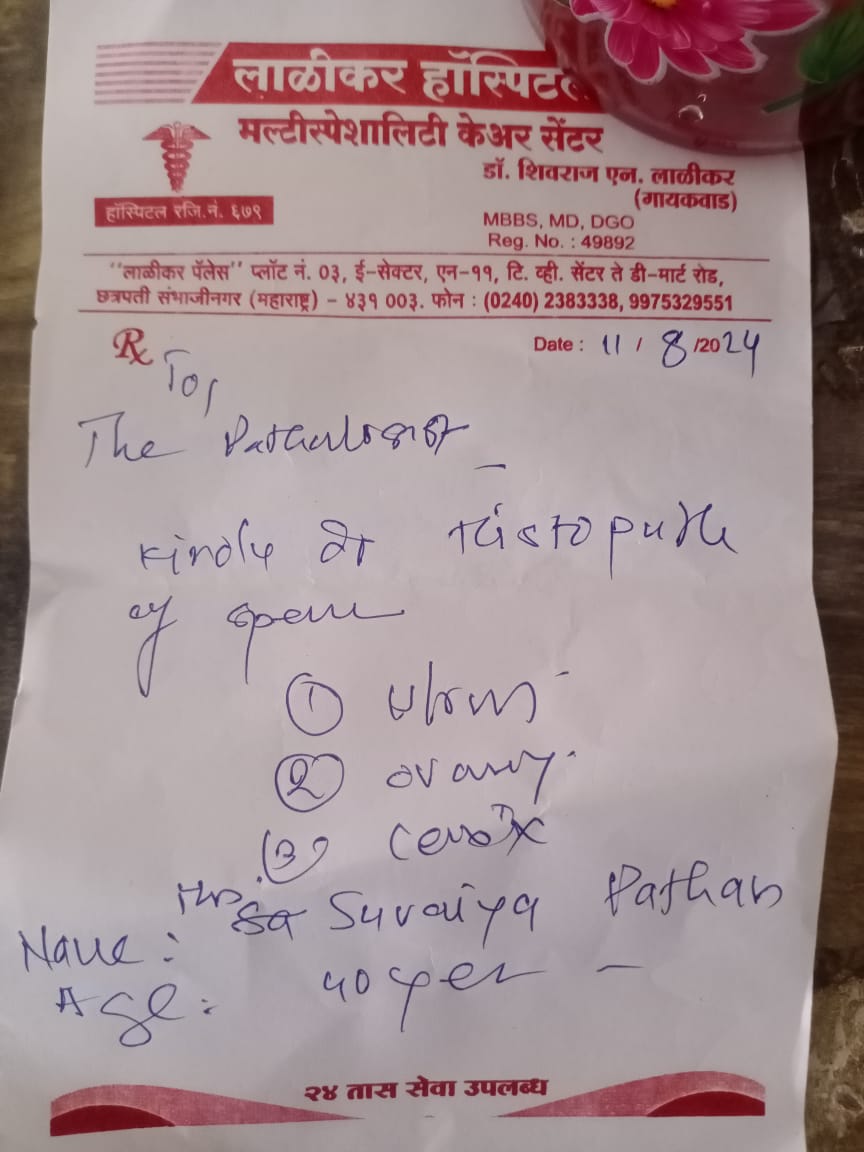 लाळीकर हॉस्पिटल
मल्टीस्पेशालिटी केअर सेंटर
डॉ. शिवराज एन. लाळीकर
(गायकवाड)
हॉस्पिटल रजि.नं. ६७९
MBBS, MD, DGO
Reg. No. : 49892
"लाळीकर पॅलेस" प्लॉट नं. ०३, ई-सेक्टर, एन-११, टि. व्ही. सेंटर ते डी-मार्ट रोड,
छत्रपती संभाजीनगर (महाराष्ट्र) - ४३१ ००३. फोन : (0240) 2383338, 9975329551
Rx
Date : 11 / 8 /2024
To,
The Pathologist
Kindly do Histopath
of
① Uterus
② ovary.
③ Cervix
Name : Suraiya Pathan
Age : 40 yer
२४ तास सेवा उपलब्ध